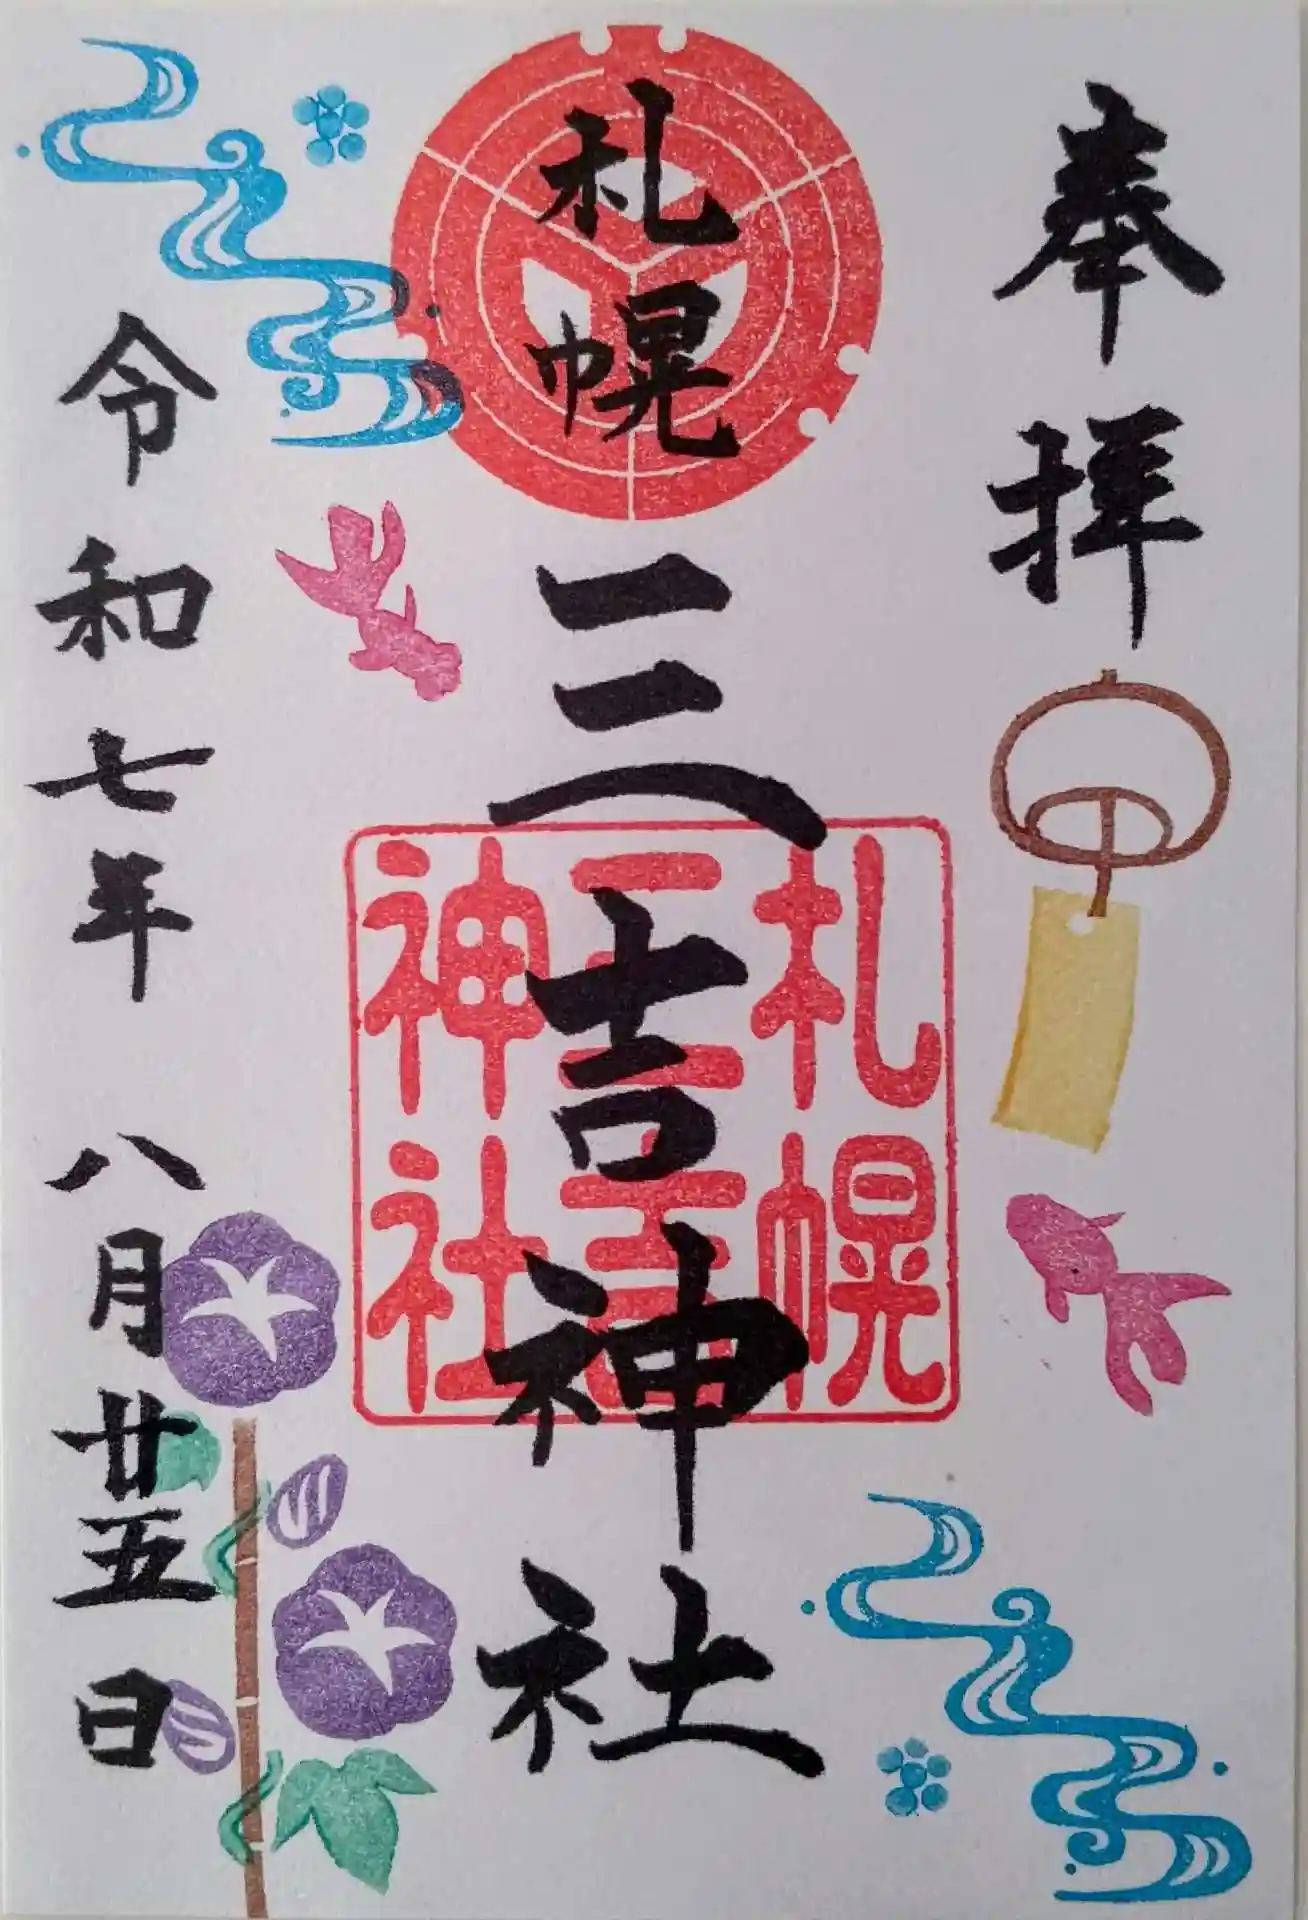 奉拝
札幌三吉神社
札幌
三吉
神社
令和七年 八月廿五日